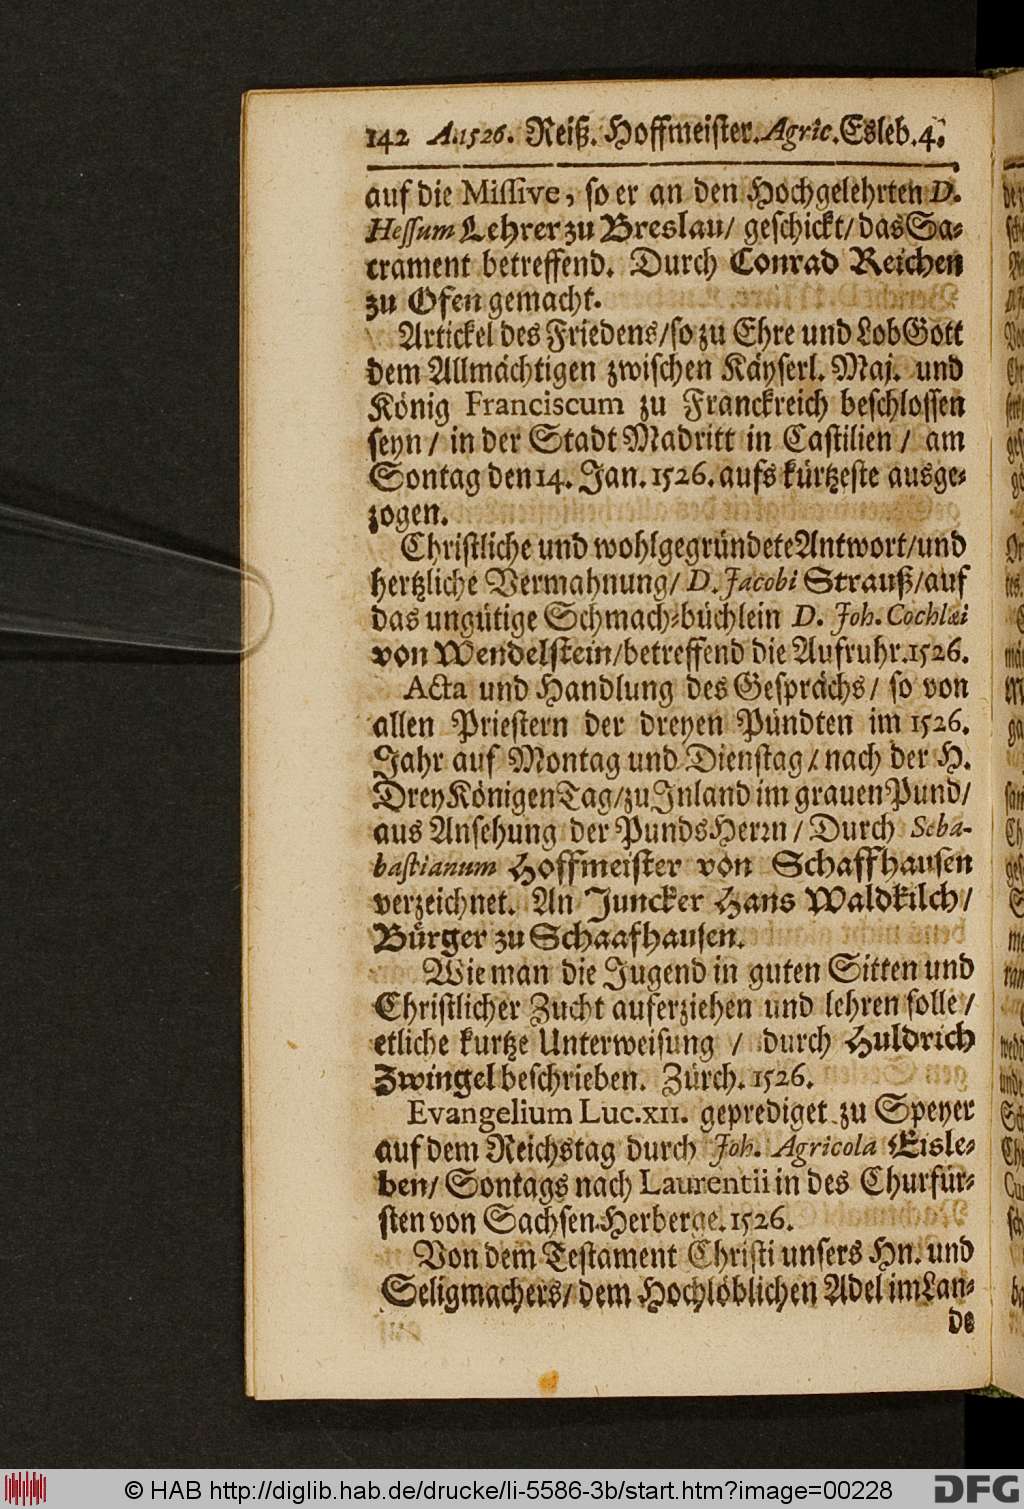 142 A.1526. Reiß. Hoffmeister. Agric. Esleb. 4.
auf die Missive, so er an den Hochgelehrten D.
Hessum Lehrer zu Breslau/ geschickt/ das Sa-
crament betreffend. Durch Conrad Reichen
zu Ofen gemacht.
Artickel des Friedens/ so zu Ehre und Lob Gott
dem Allmächtigen zwischen Käyserl. Maj. und
König Franciscum zu Franckreich beschlossen
seyn/ in der Stadt Madritt in Castilien/ am
Sontag den 14. Jan. 1526. aufs kürtzeste ausge-
zogen.
Christliche und wohlgegründete Antwort/ und
hertzliche Vermahnung/ D. Jacobi Strauß/ auf
das ungütige Schmach-büchlein D. Joh. Cochlæi
von Wendelstein/ betreffend die Aufruhr. 1526.
Acta und Handlung des Gesprächs/ so von
allen Priestern der dreyen Pündten im 1526.
Jahr auf Montag und Dienstag/ nach der H.
Drey Königen Tag/ zu Inland im grauen Pund/
aus Ansehung der Punds Herrn/ Durch Seba-
bastianum Hoffmeister von Schaffhausen
verzeichnet. An Juncker Hans Waldkilch/
Bürger zu Schaafhausen.
Wie man die Jugend in guten Sitten und
Christlicher Zucht auferziehen und lehren solle/
etliche kurtze Unterweisung / durch Huldrich
Zwingel beschrieben. Zürch. 1526.
Evangelium Luc. XII. geprediget zu Speyer
auf dem Reichstag durch Joh. Agricola Eisle-
ben/ Sontags nach Laurentii in des Churfür-
sten von Sachsen Herberge. 1526.
Von dem Testament Christi unsers Hn. und
Seligmachers/ dem Hochlöblichen Adel im Lan-
de
© HAB http://diglib.hab.de/drucke/li-5586-3b/start.htm?image=00228
DFG